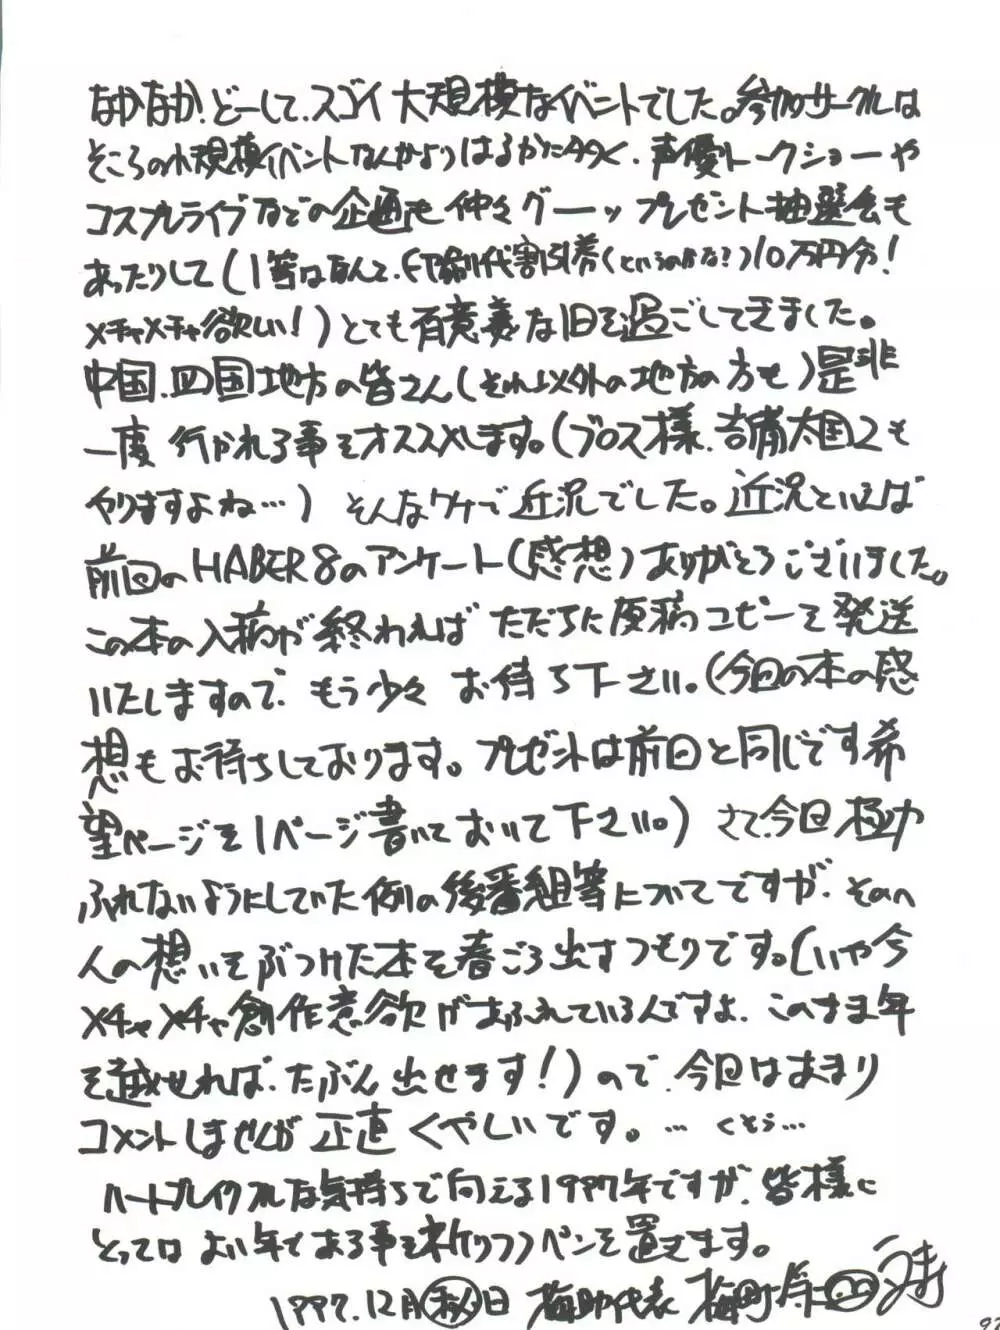 なかなか、どーして、スゴイ大規模なイベントでした。参加サークルは
そこらの小規模イベントなんかよりはるかに多く、声優トークショーや
コスプレライブなどの企画も仲々グーッ プレゼント抽選会も
あったりして(1等はなんと、印刷代割引券(というのかな?)10万円分!
メチャメチャ欲しい!)とても有意義な1日を過ごしてきました。
中国、四国地方の皆さん(それ以外の地方の方も)是非
一度 行かれる事をオススメします。(ブロス様、吉備太国2も
やりますよね…) そんなワケで近況でした。近況といえば
前回のHABER8のアンケート(感想)ありがとうございました。
この本の入稿が終わればただちに原稿コピーを発送
いたしますので、もう少々 お待ち下さい。(今回の本の感
想もお待ちしております。プレゼントは前回と同じです希
望ページを1ページ書いておいて下さい。) さて、今回極力
ふれないようにしていた例の後番組等についてですが、その
人の想いをぶつけた本を春ごろ出すつもりです。(いや今
メチャメチャ創作意欲があふれているんですよ、このまま年
を越せれば、たぶん出せます!)ので、今回はあまり
コメントしませんが正直くやしいです。… くそう…
ハートブレイクルな気持ちで向える1997年ですが、皆様に
とっては よい年である事を祈りつつペンを置きます。
1997.12月 日 梅助代表 梅町